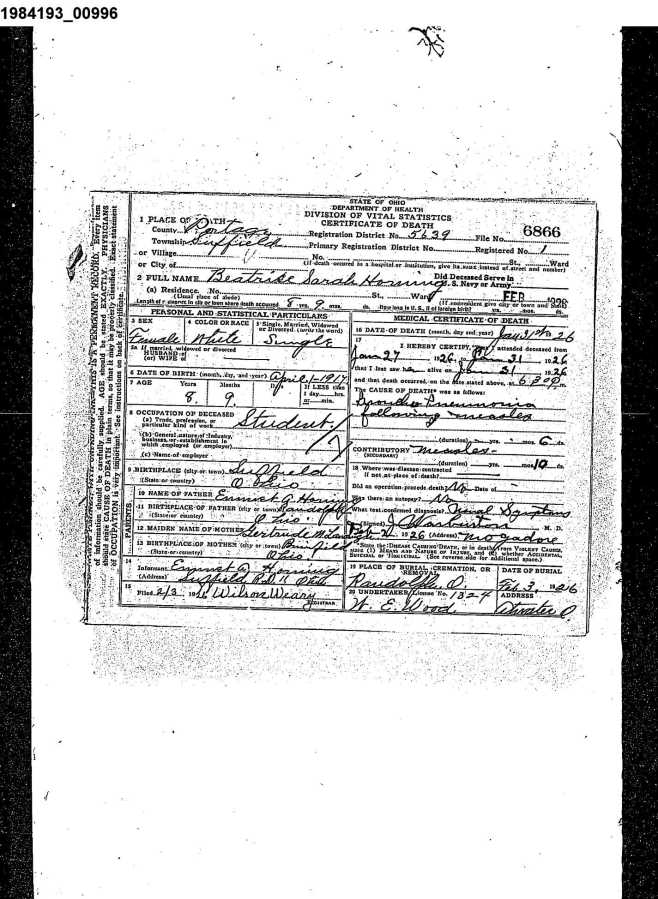 1984193_00996
STATE OF OHIO
DEPARTMENT OF HEALTH
DIVISION OF VITAL STATISTICS
CERTIFICATE OF DEATH
1 PLACE OF DEATH
County Portage
Registration District No. 5639 File No. 6866
Township Suffield
Primary Registration District No. Registered No. 1
or Village
No. St., Ward
or City of
(If death occurred in a hospital or institution, give its NAME instead of street and number)
Did Deceased Serve in
2 FULL NAME Beatrice Sarah Horning U. S. Navy or Army
(a) Residence. No. St., Ward
(Usual place of abode)
(If nonresident give city or town and State)
FEB 1926
Length of residence in city or town where death occurred 8 yrs. 9 mos. ds. How long in U. S., if of foreign birth? yrs. mos. ds.
PERSONAL AND STATISTICAL PARTICULARS
3 SEX
Female
4 COLOR OR RACE
White
5 Single, Married, Widowed or Divorced (write the word)
Single
5a If married, widowed or divorced
HUSBAND of
(or) WIFE of
6 DATE OF BIRTH (month, day, and year) April 1-1917
7 AGE Years Months Days If LESS than
8 9 1 day, hrs.
or min.
8 OCCUPATION OF DECEASED
(a) Trade, profession, or
particular kind of work Student
(b) General nature of industry,
business, or establishment in
which employed (or employer)
(c) Name of employer
9 BIRTHPLACE (city or town) Suffield
(State or country) Ohio
10 NAME OF FATHER Emmet G. Horning
11 BIRTHPLACE OF FATHER (city or town) Randolph
(State or country) Ohio
12 MAIDEN NAME OF MOTHER Gertrude
13 BIRTHPLACE OF MOTHER (city or town)
(State or country) Ohio
PARENTS
14
Informant Emmet G. Horning
(Address) Suffield Ohio
15
Filed 2/3, 19 Wilson Weary
REGISTRAR
MEDICAL CERTIFICATE OF DEATH
16 DATE OF DEATH (month, day and year) Jan 31 1926
17
I HEREBY CERTIFY, That I attended deceased from
Jan 27, 1926, to 31, 1926
that I last saw her alive on Jan 31, 1926
and that death occurred, on the date stated above, at 6:30 P m.
The CAUSE OF DEATH* was as follows:
Broncho Pneumonia
following measles
(duration) yrs. mos. 6 ds.
CONTRIBUTORY Measles
(SECONDARY)
(duration) yrs. mos. 10 ds.
18 Where was disease contracted
if not at place of death?
Did an operation precede death? No Date of
Was there an autopsy? No
What test confirmed diagnosis? Usual Symptoms
(Signed) J. Warburton M. D.
Feb 2, 1926 (Address) Mogadore
*State the DISEASE CAUSING DEATH, or in deaths from VIOLENT CAUSES,
state (1) MEANS AND NATURE OF INJURY, and (2) whether ACCIDENTAL,
SUICIDAL or HOMICIDAL. (See reverse side for additional space.)
19 PLACE OF BURIAL, CREMATION, OR REMOVAL
Randolph O.
DATE OF BURIAL
Feb 3, 1926
20 UNDERTAKER, License No. 1324
W. E. Wood
ADDRESS
Atwater O